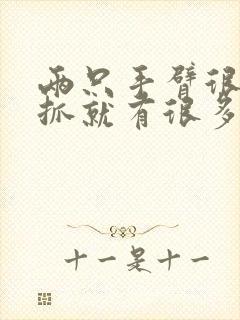 两只手臂很
抓就有很多
十一是十一